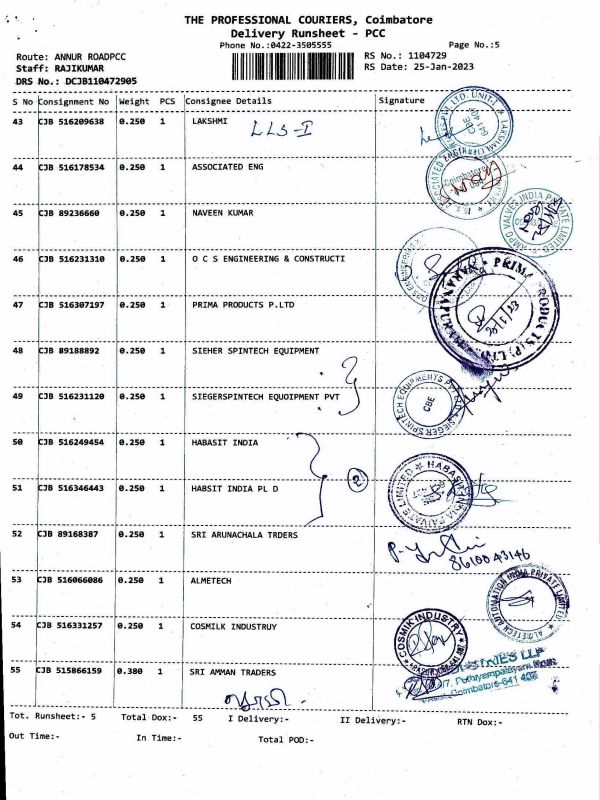 THE PROFESSIONAL COURIERS, Coimbatore
Delivery Runsheet - PCC
Phone No.:0422-3505555 Page No.:5
Route: ANNUR ROADPCC RS No.: 1104729
Staff: RAJIKUMAR RS Date: 25-Jan-2023
DRS No.: DCJB110472905
S No Consignment No Weight PCS Consignee Details Signature
43 CJB 516209638 0.250 1 LAKSHMI
LLS-I
44 CJB 516178534 0.250 1 ASSOCIATED ENG
45 CJB 89236660 0.250 1 NAVEEN KUMAR
AMPO VALVES INDIA PRIVATE LIMITED
46 CJB 516231310 0.250 1 O C S ENGINEERING & CONSTRUCTI
47 CJB 516307197 0.250 1 PRIMA PRODUCTS P.LTD
PRIMA PRODUCTS (P) LTD.
48 CJB 89188892 0.250 1 SIEHER SPINTECH EQUIPMENT
49 CJB 516231120 0.250 1 SIEGERSPINTECH EQUOIPMENT PVT
SIEGER SPINTECH EQUIPMENTS PVT LTD
CBE
50 CJB 516249454 0.250 1 HABASIT INDIA
51 CJB 516346443 0.250 1 HABSIT INDIA PL D
2
HABASIT INDIA PRIVATE LIMITED
52 CJB 89168387 0.250 1 SRI ARUNACHALA TRDERS
8610043146
53 CJB 516066086 0.250 1 ALMETECH
ALMETECH AUTOMATION INDIA PRIVATE LIMITED
54 CJB 516331257 0.250 1 COSMILK INDUSTRUY
COSMIK INDUSTRY
55 CJB 515866159 0.380 1 SRI AMMAN TRADERS
Coimbatore-641
Tot. Runsheet:- 5 Total Dox:- 55 I Delivery:- II Delivery:- RTN Dox:-
Out Time:- In Time:- Total POD:-